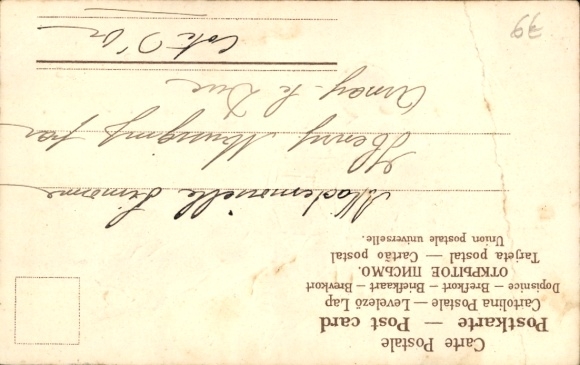 Carte Postale
Postkarte — Post card
Cartolina Postale — Levelező Lap
Dopisnice — Brefkort — Briefkaart — Brevkort
ОТКРЫТОЕ ПИСЬМО.
Tarjeta postal — Cartão postal
Union postale universelle.
Mademoiselle Simone
Henry par
Arnay-le Duc
Cote D'or